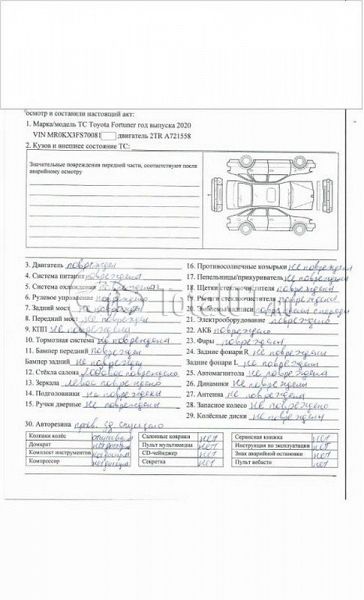 осмотр и составили настоящий акт:
1. Марка/модель ТС Toyota Fortuner год выпуска 2020
VIN MR0KX3FS70081 двигатель 2TR A721558
2. Кузов и внешнее состояние ТС:
Значительные повреждения передней части, соответствуют после
аварийному осмотру
3. Двигатель поврежден
4. Система питания повреждена
5. Система охлаждения
6. Рулевое управление повреждено
7. Задний мост не поврежден
8. Передний мост не поврежден
9. КПП не повреждена
10. Тормозная система не повреждена
11. Бампер передний поврежден
Бампер задний не поврежден
12. Стёкла салона лобовое повреждено
13. Зеркала левое повреждено
14. Подголовники не повреждены
15. Ручки дверные не повреждены
16. Противосолнечные козырьки не повреждены
17. Пепельницы/прикуриватель не повреждены
18. Щетки стеклоочистителя повреждены
19. стеклоочистителя повреждены
20.
21. Электрооборудование повреждено
22. АКБ повреждено
23. Фары повреждены
24. Задние фонари R не повреждены
Задние фонари L не повреждены
25. Автомагнитола не повреждена
26. Динамики не повреждены
27. Антенна не повреждена
28. Запасное колесо не повреждено
29. Колёсные диски не повреждены
30. Авторезина прав. спущено
Колпаки колёс Салонные коврики нет Сервисная книжка нет
Домкрат Пульт мультимедиа нет Инструкция по эксплуатации нет
Комплект инструментов CD-чейнджер нет Знак аварийной остановки нет
Компрессор Секретка нет Пульт вебасто нет